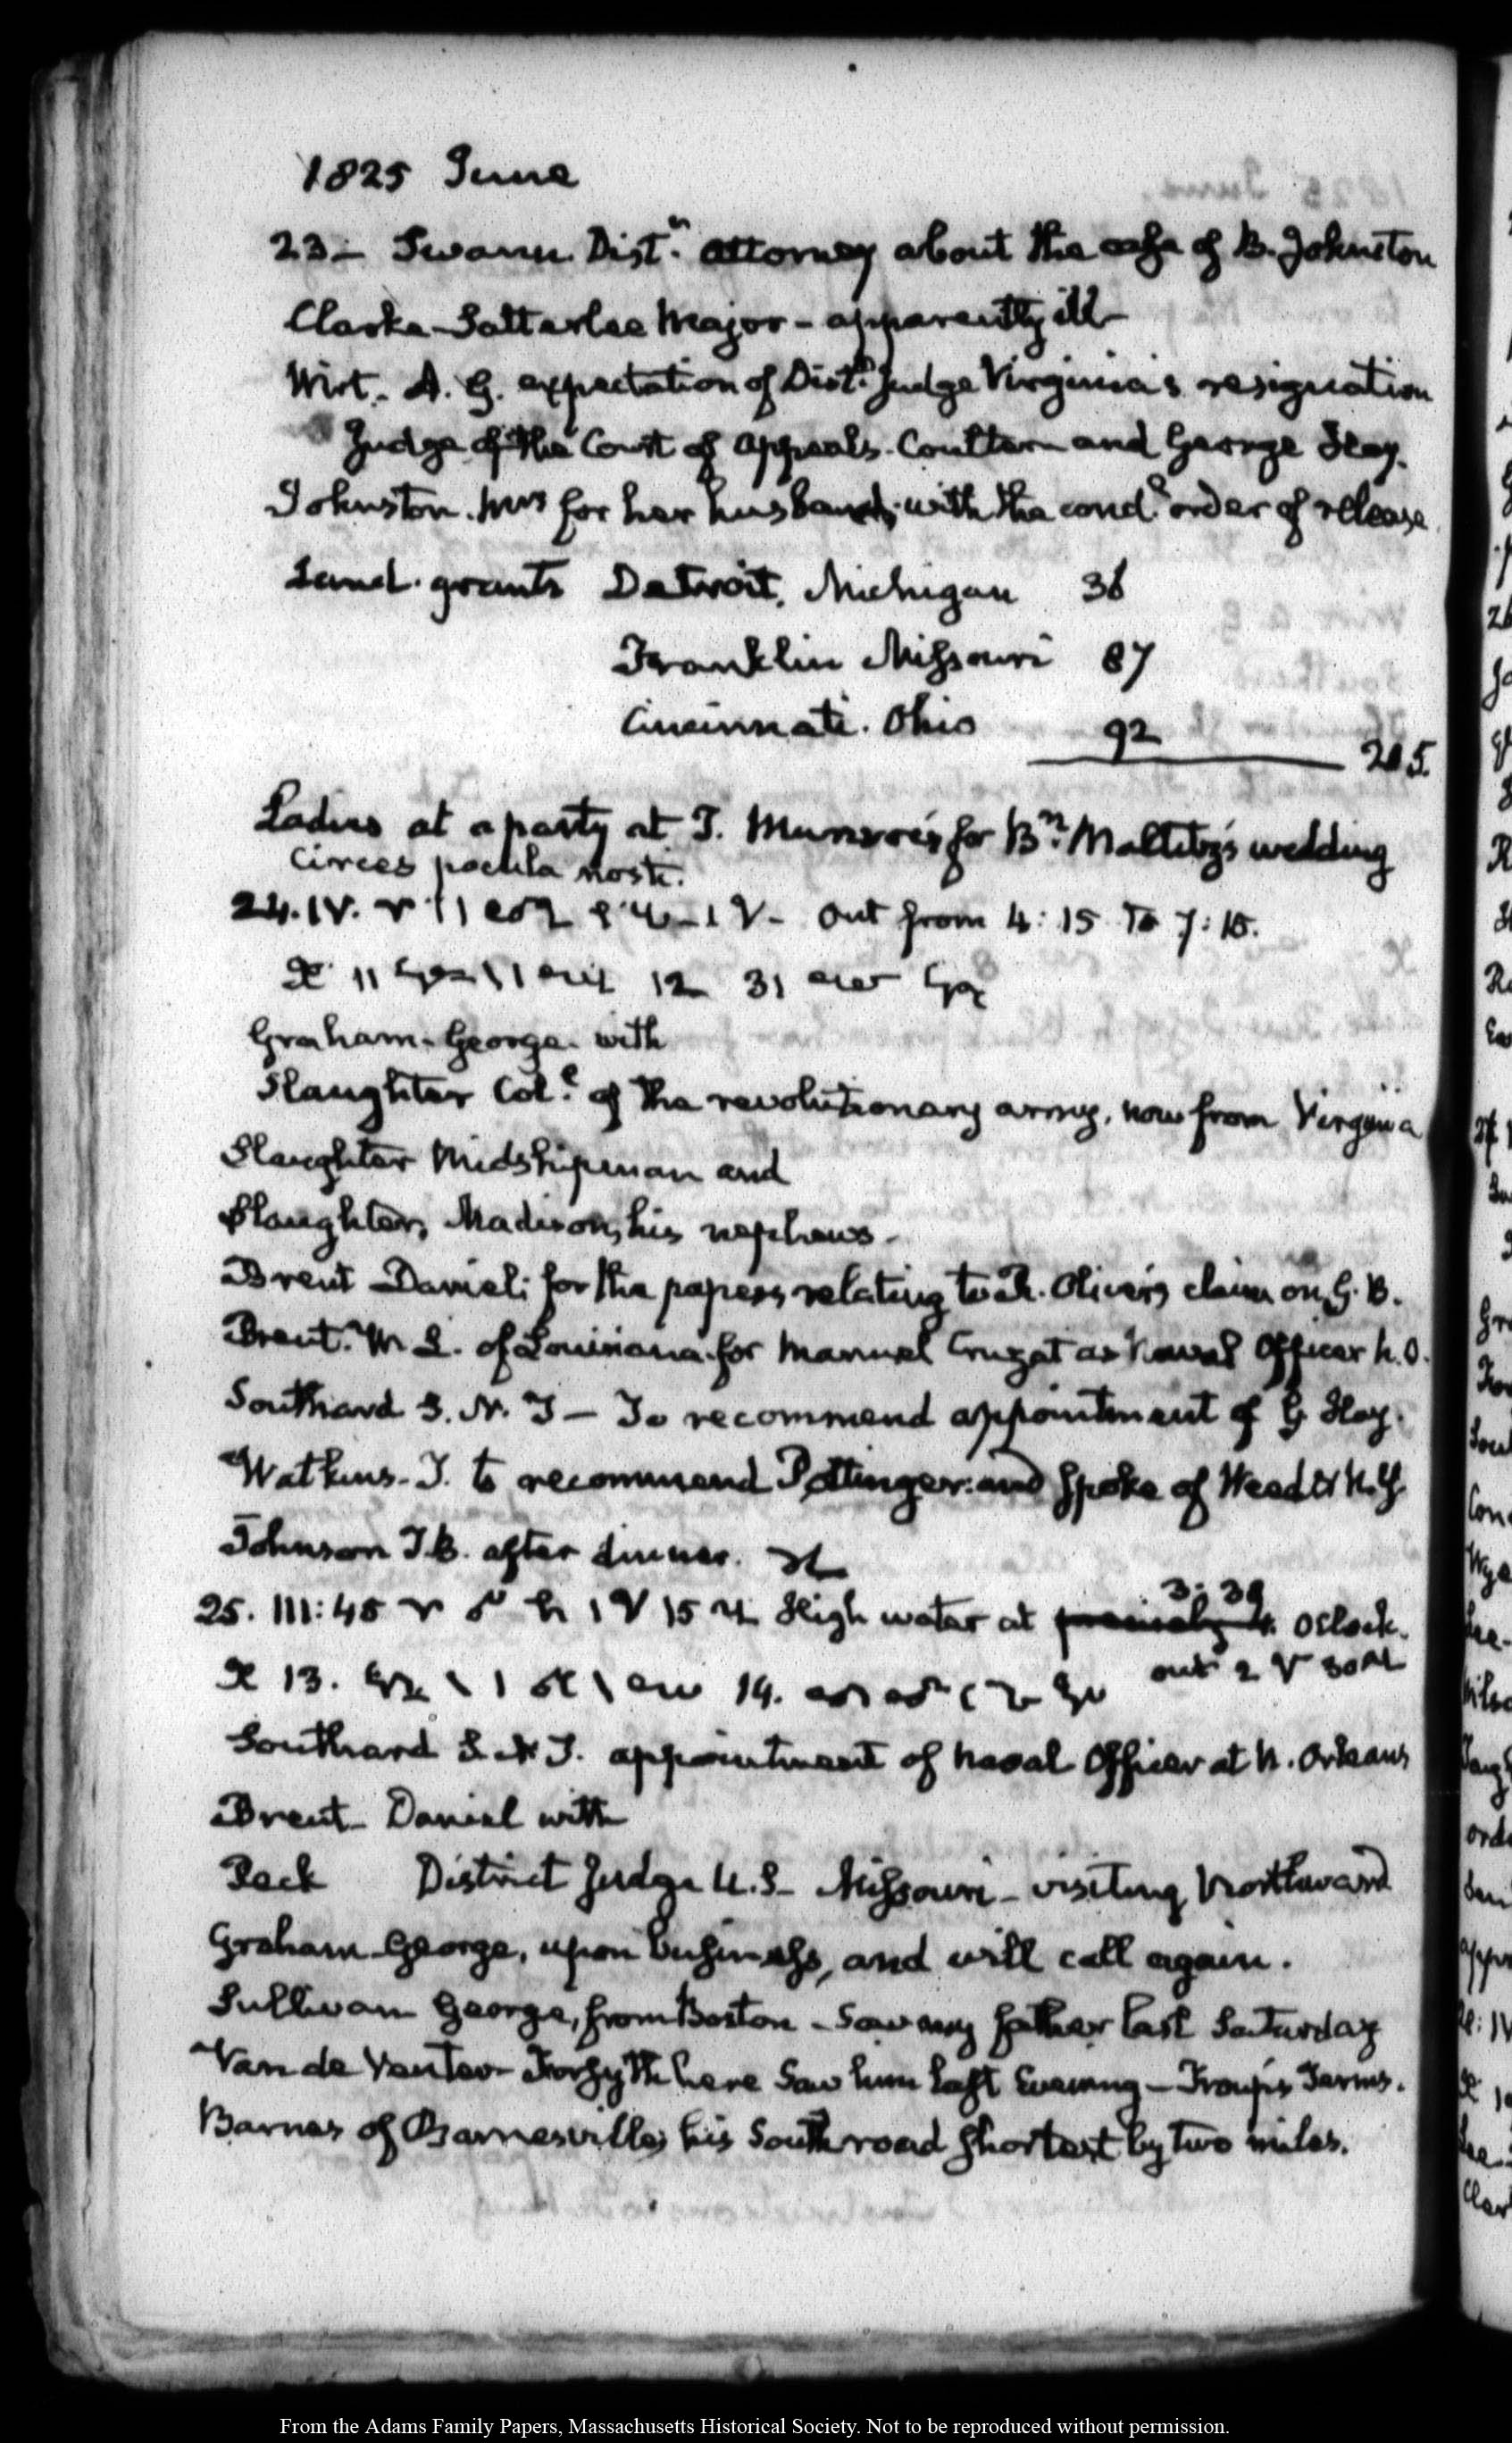 1825 June
23– Swann. Distn. attorney about the case of B. Johnston
Clarke Satterlee Major – apparently ill
Wirt. A. G. expectation of Distt. Judge Virginia's resignation
Judge of the Court of Appeals. Coulter and George Hay.
Johnston. Mrs for her husband; with the condl. order of release
Land grants Detroit, Michigan 36
Franklin Missouri 87
Cincinnati. Ohio 92
215.
Ladies at a party at T. Munroe's for Bn. Maltby's wedding
Circes pocula nosti.
24. IV. out from 4:15 to 7:15.
11 12 31
Graham. George. with
Slaughter Coll. of the revolutionary army, now from Virginia
Slaughter Midshipman and
Slaughter, Madison, his nephews–
Brent Daniel: for the papers relating to R. Oliver's claim on G. B.
Brent. W. L. of Louisiana for Manuel Cruzat as Naval Officer N. O.
Southard S. N. J – To recommend appointment of G Hay.
Watkins. T. to recommend Pottinger: and spoke of Weed N. Y
Johnson J. B. after dinner.
25. III:45 High water at precisely 4. 3:39 oclock.
13. 14. out 2
Southard S. N J. appointment of Naval Officer at N. Orleans
Brent– Daniel with
Peck District Judge U.S– Missouri – visiting Northward
Graham George, upon business, and will call again.
Sullivan George, from Boston – Saw my father last Saturday
Van de Venter– Forsyth here Saw him last Evening – Troup's Terms.
Barnes of Barnesville; his South road shortest by two miles.
From the Adams Family Papers, Massachusetts Historical Society. Not to be reproduced without permission.